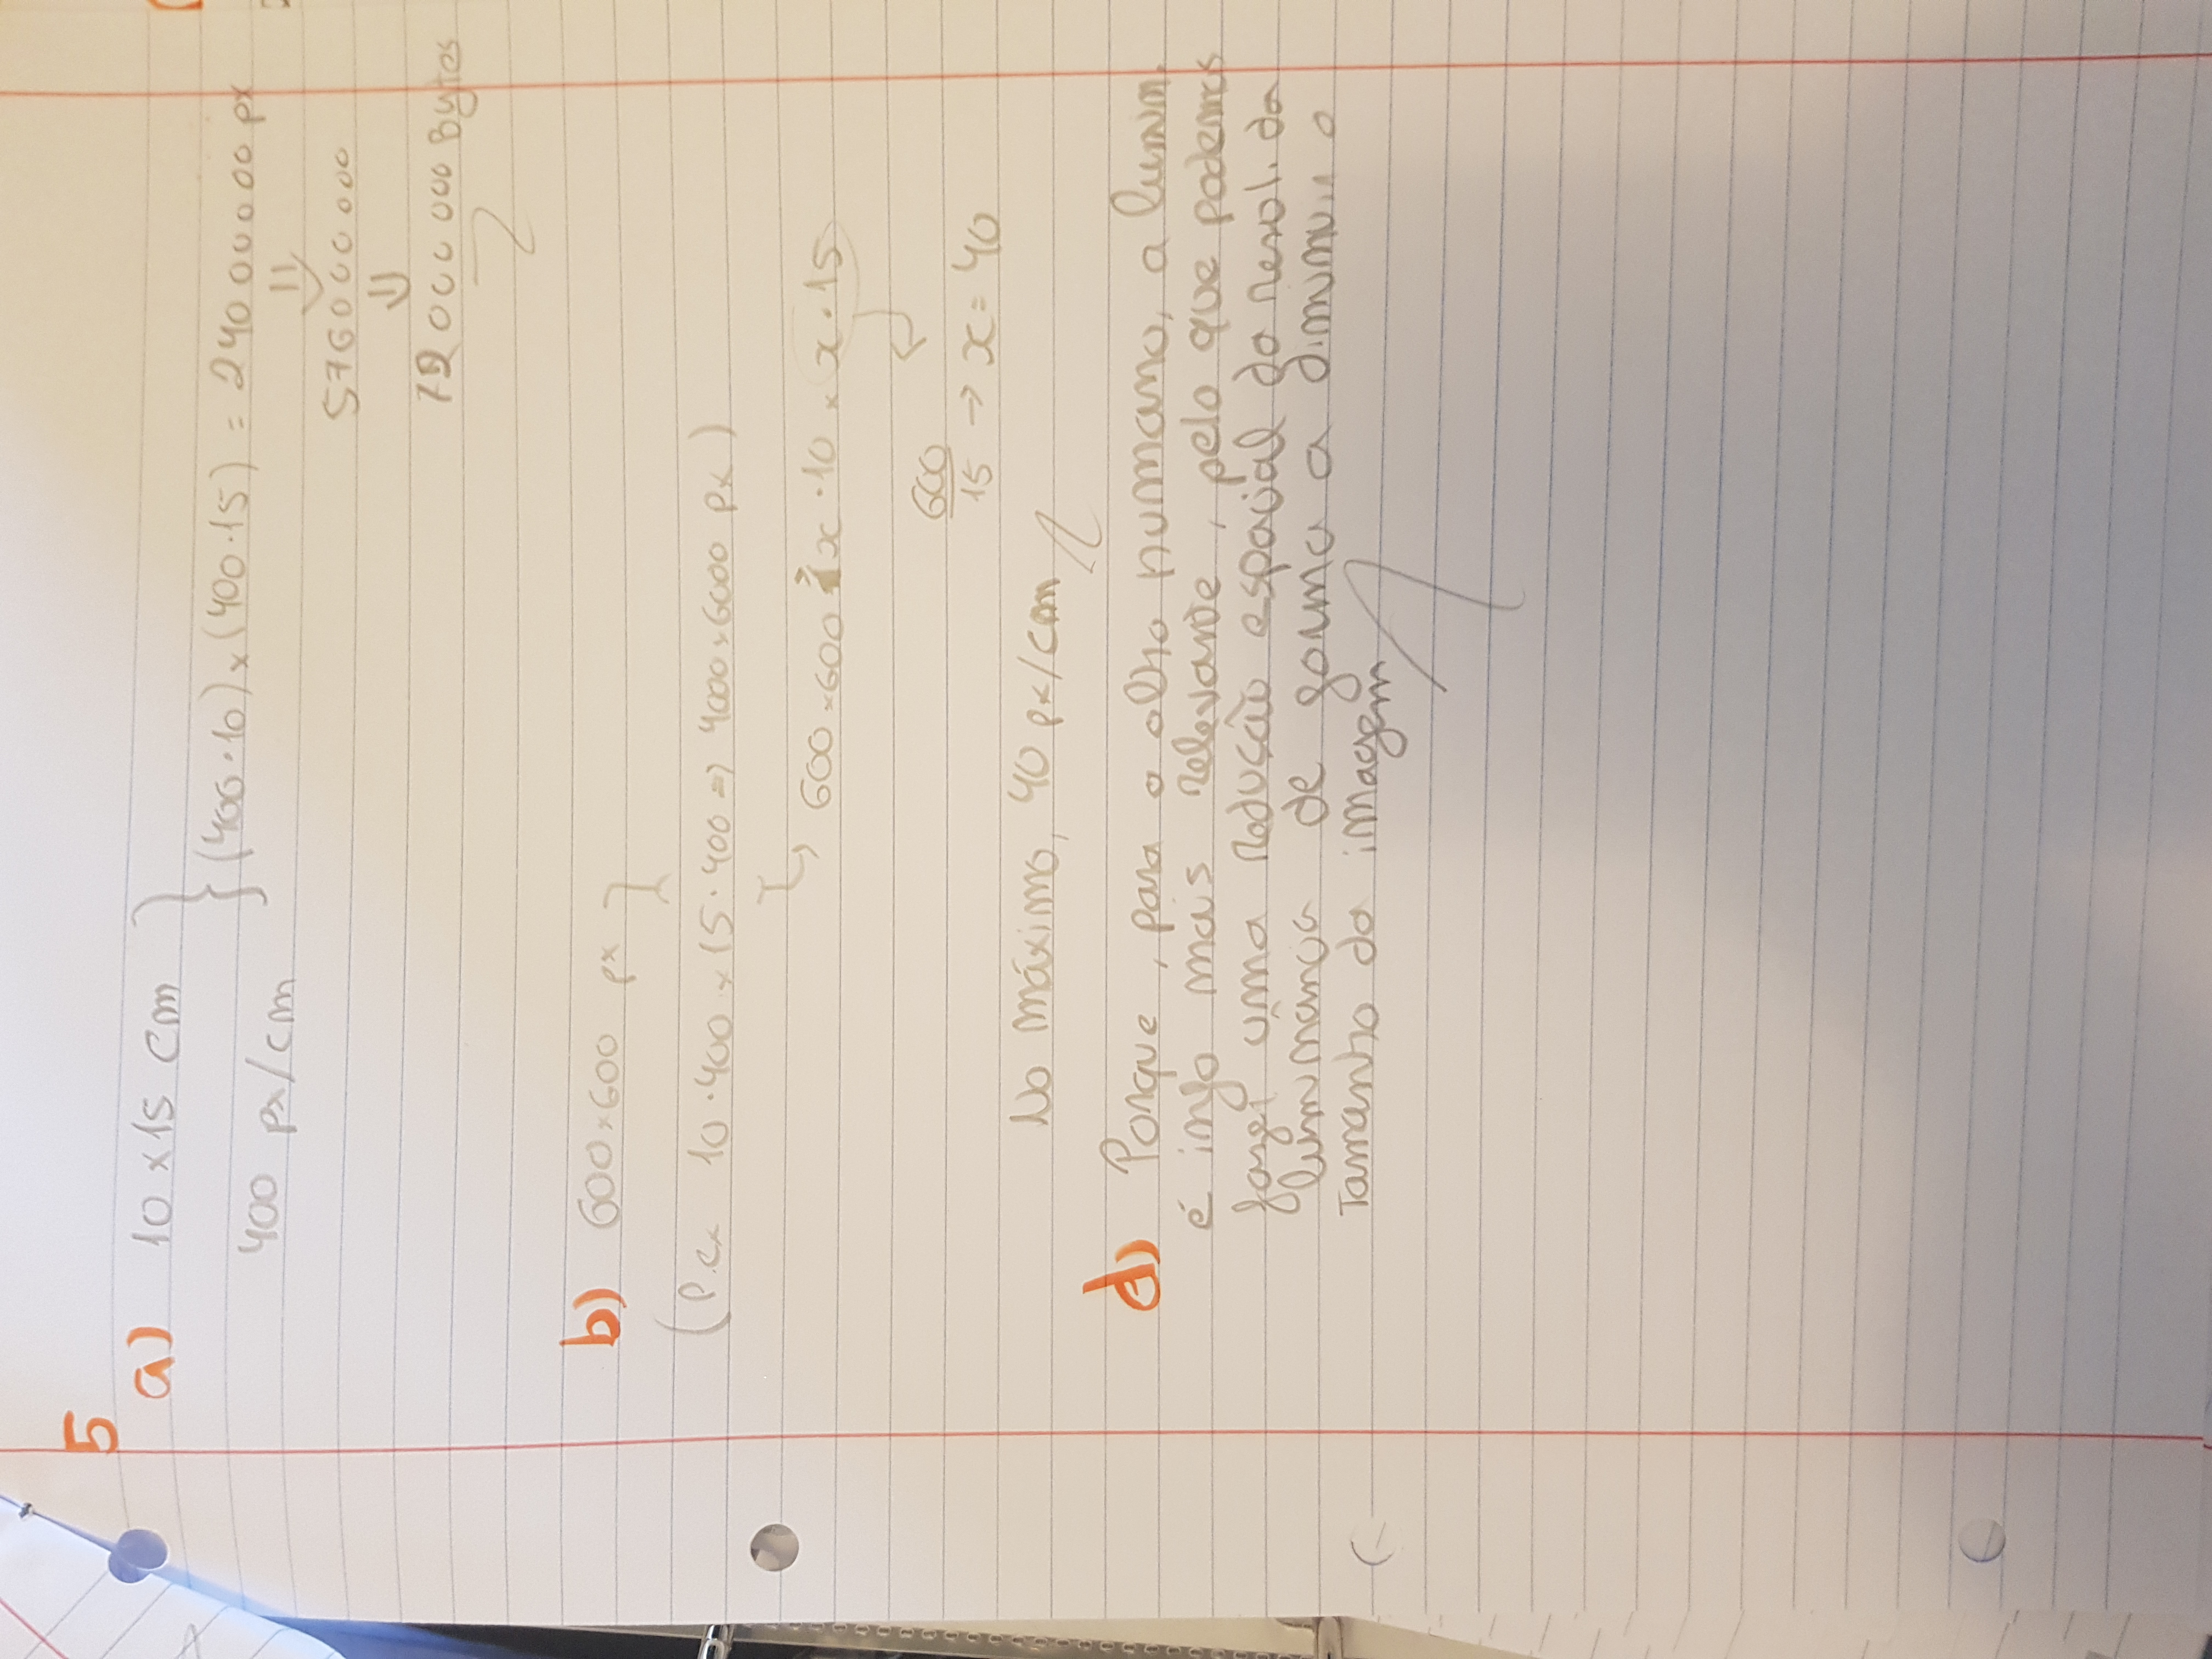 5
a) 10 x 15 cm
400 px/cm
(400 · 10) x (400 · 15) = 24000000 px
⇓
576000000
⇓
72000000 Bytes
b) 600 x 600 px
(P.ex 10 · 400 x 15 · 400 => 4000 x 6000 px)
600 x 600 x · 10 x x · 15
600/15 → x = 40
No máximo, 40 px/cm
d) Porque, para o olho humano, a lumin.
é info mais relevante, pelo que podemos
fazer uma redução espacial da resol. da
luminância de forma a diminuir o
tamanho da imagem